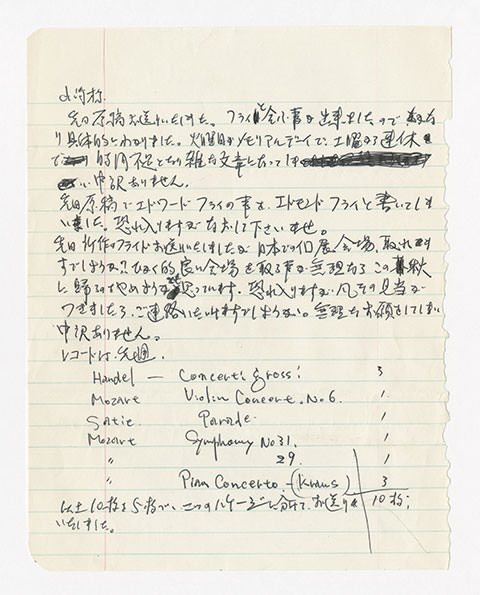 先日原稿お送りいたしました。フライと会ふ事が出来ましたので
り具体的にわかりました。火曜日がメモリアルデイで、土曜から連休
で 時間不足となり雑な文章になって
申訳ありません。
先日原稿でエドワード フライの事を、エドモンド フライと書いてしま
いました。恐れ入りますがなおして下さいませ。
先日新作スライドお送りいたしましたが日本での個展会場、取れ
すでしょうか?ひかく的良い会場を取る事が無理なら この 秋
に帰るのやめようと思っています。恐れ入りますが凡その見当が
つきましたらご連絡いただけますでしょうか。無理なお願をしてしまい
申訳ありません。
レコードは、先週、
Handel — Concerti grossi 3
Mozart Violin Concert. No 6. 1
Satie Parade. 1
Mozart Symphony No 31. 1
〃 29 1
〃 Piano Concerto (Kraus) 3
以上10枚を5枚で、二つのパケージに分けて、お送り 10枚;
いたしました。